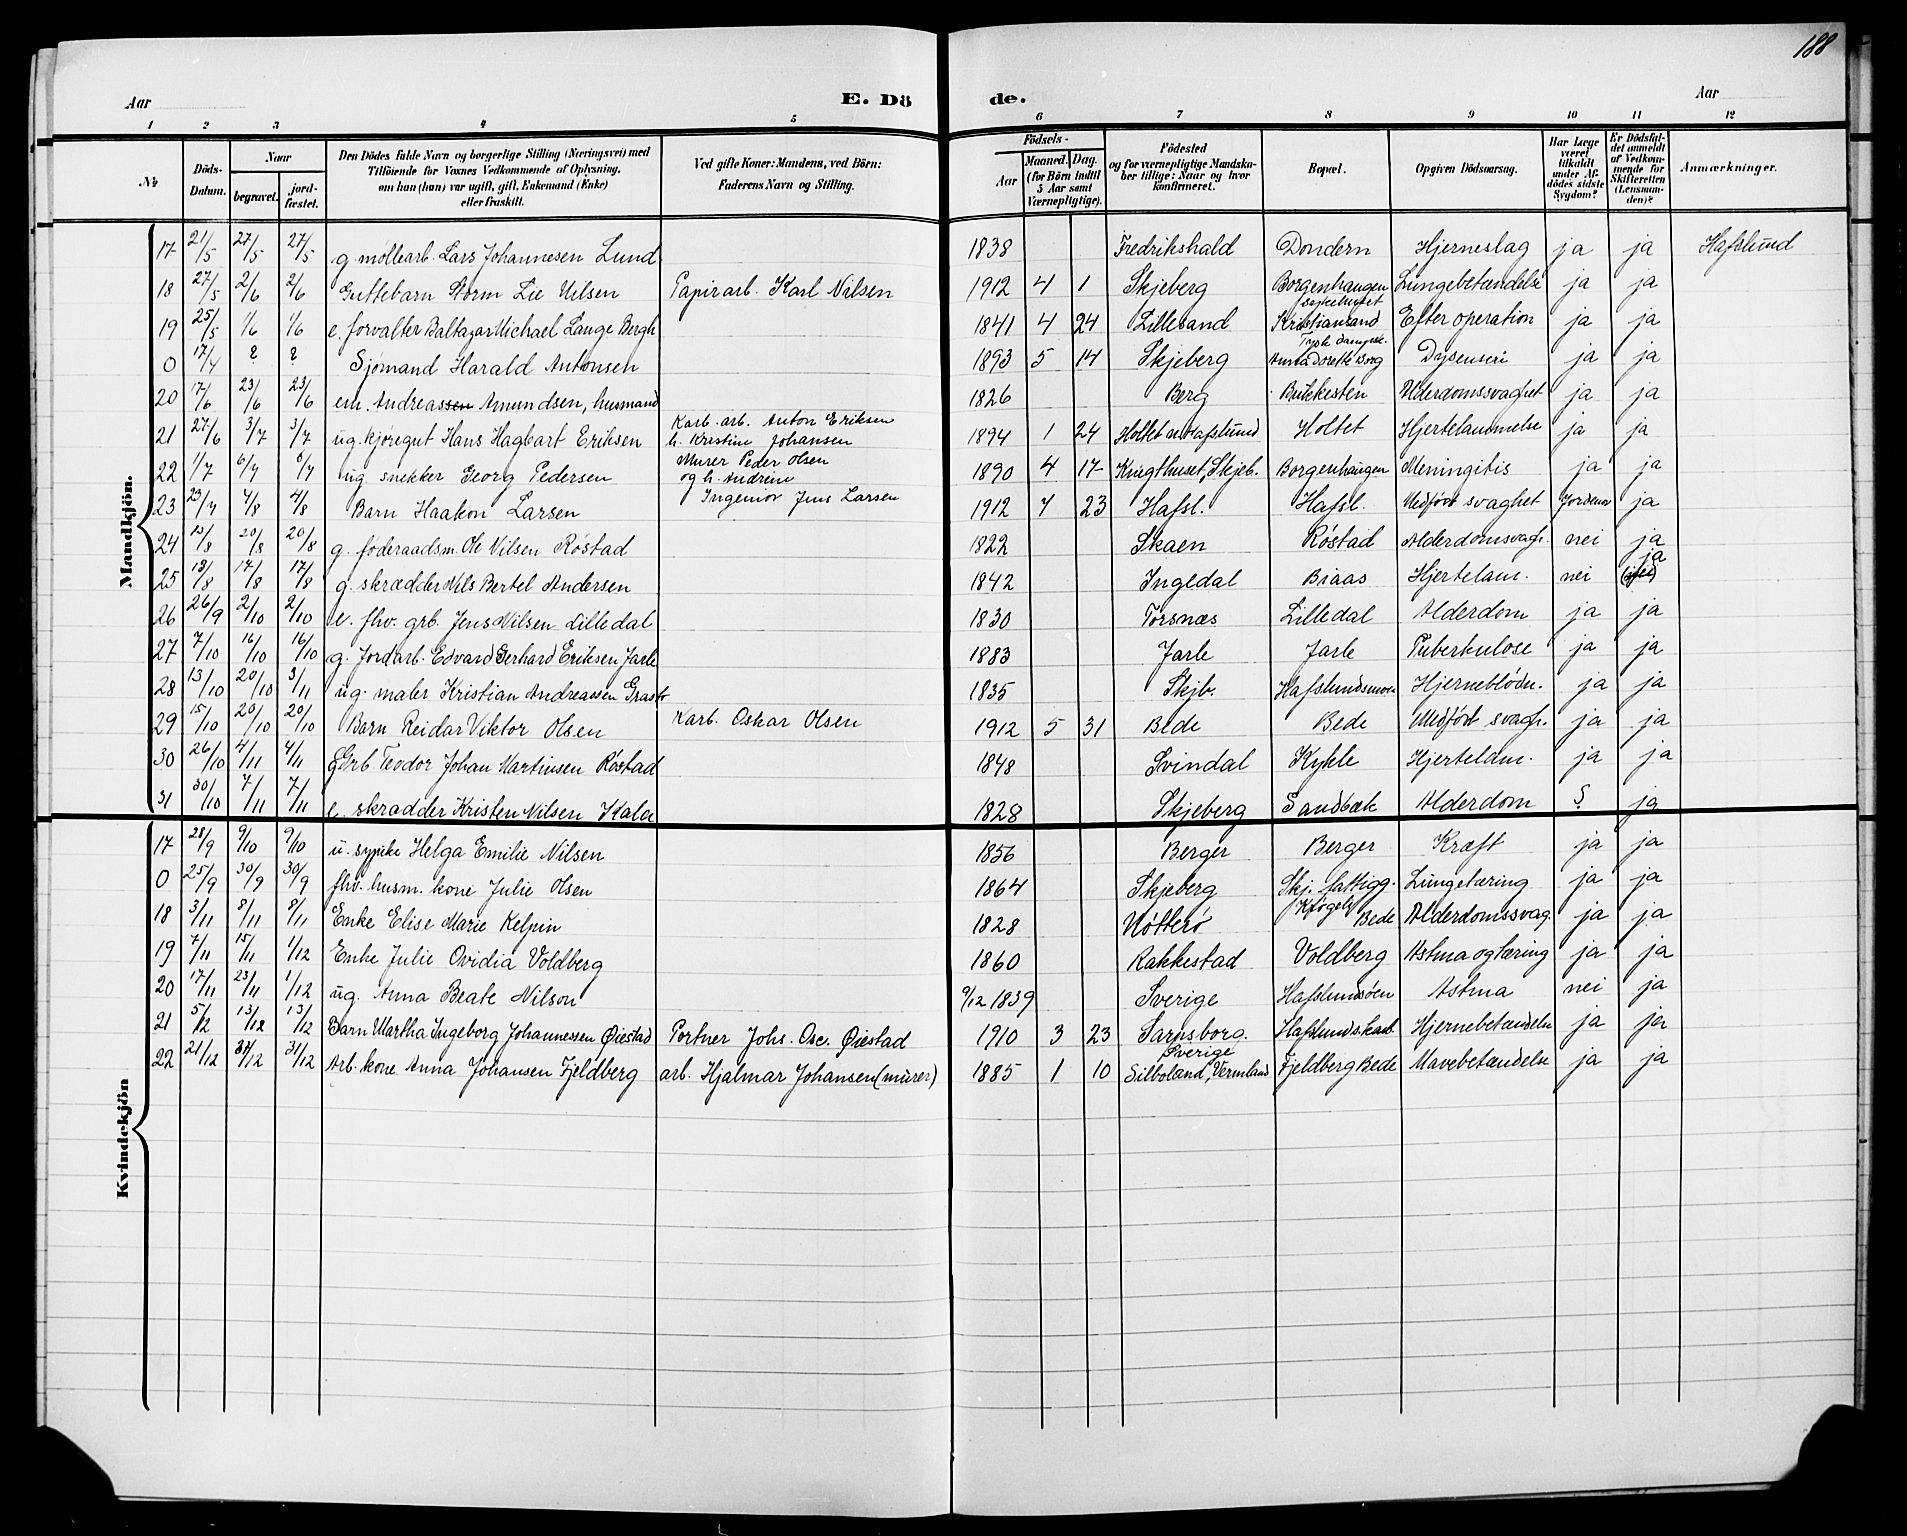 188
Aar E. Dö de. Aar
1 2 3 4 5 6 7 8 9 10 11 12
№ Döds-Datum. Naar begravet. jordfæstet. Den Dödes fulde Navn og borgerlige Stilling (Næringsvei) med Tilföiende for Voxnes Vedkommende af Oplysning, om han (hun) var ugift, gift, Enkemand (Enke) eller fraskilt. Ved gifte Koner: Mandens, ved Börn: Faderens Navn og Stilling. Födsels- Aar Maaned. Dag. (for Börn indtil 5 Aar samt Værnepligtige). Födested og for værnepligtige Mandskaber tillige: Naar og hvor konfirmeret. Bopæl. Opgiven Dödsaarsag. Har Læge været tilkaldt under Afdödes sidste Sygdom? Er Dödsfaldet anmeldt af Vedkommende for Skifteretten (Lensmanden)? Anmærkninger.
Mandkjön.
17 21/5 27/5 27/5 g. møllearb. Lars Johannesen Lund 1838 Fredrikshald Dondern Hjerneslag ja ja Hafslund
18 27/5 2/6 2/6 Guttebarn Storm Lie Nilsen Papirarb. Karl Nilsen 1912 4 1 Skjeberg Borgenhaugen Lungebetændelse ja ja
19 25/5 1/6 1/6 e. forvalter Baltazar Michael Lange Bergh 1841 4 24 Lillesand sykehuset Kristiansand Efter operation ja ja
0 17/4 ? ? Sjømand Harald Antonsen 1893 5 14 Skjeberg Tysk dampsk. Anna Dorette Borg Dysenteri ja ja
20 17/6 23/6 23/6 em. Andreassen Amundsen, husmand 1826 Berg Bukkesten Alderdomssvaghet ja ja
21 27/6 3/7 3/7 ug. kjøregut Hans Hagbart Eriksen Karb. arb. Anton Eriksen h. Kristine Johansen 1894 1 24 Holtet n. Hafslund Holtet Hjertelammelse ja ja
22 1/7 6/7 6/7 ug. snekker Georg Pedersen Murer Peder Olsen og h. Andrine 1890 4 17 Krugthuset, Skjeb. Borgenhaugen Meningitis ja ja
23 29/7 4/8 4/8 Barn Haakon Larsen Ingeniør Jens Larsen 1912 7 23 Hafsl. Hafsl. Medfødt svaghet Jordemor ja
24 13/8 20/8 20/8 g. føderaadsm. Ole Nilsen Røstad 1822 Skaen Røstad Alderdomsvagh. nei ja
25 13/8 17/8 17/8 g. skrædder Nils Bertel Andersen 1842 Ingedal Biaas Hjertelam. nei ja
26 26/9 2/10 2/10 e. fhv. grb. Jens Nilsen Lilledal 1830 Torsnæs Lilledal Alderdom ja ja
27 7/10 16/10 16/10 g. Jordarb. Edvard Gerhard Eriksen Jarle 1883 Jarle Jarle Tuberkulose ja ja
28 13/10 20/10 3/11 ug. maler Kristian Andreassen 1835 Skjb. Hafslundsmoen Hjerneblødn. ja ja
29 15/10 20/10 20/10 Barn Reidar Viktor Olsen Karb. Oskar Olsen 1912 5 31 Bede Bede Medfødt svagh. ja ja
30 26/10 4/11 4/11 g Grb. Teodor Johan Martinsen Røstad 1848 Svindal Kykle Hjertelam. ja ja
31 30/10 7/11 7/11 e. skradder Kristen Nilsen Kala 1828 Skjeberg Sandbæk Alderdom ? ja
Kvindekjön
17 28/9 9/10 9/10 u. sypike Helga Emilie Nilsen 1856 Berger Berger Kræft ja ja
0 25/9 30/9 30/9 fhv. husm. kone Julie Olsen 1864 Skjeberg Skj. fattigg. Lungetæring ja ja
18 3/11 8/11 8/11 Enke Elise Marie Kelpin 1828 Nøtterø Bede Alderdomssvag. ja ja
19 7/11 15/11 1/12 Enke Julie Ovidia Voldberg 1860 Rakkestad Voldberg Astma og tæring ja ja
20 17/11 23/11 1/12 ug. Anna Beate Nilson 9/12 1839 Sverige Hafslundsøen Astma nei ja
21 5/12 13/12 13/12 Barn Martha Ingeborg Johannessen Øiestad Portner Johs. Osc. Øiestad 1910 3 23 Sarpsborg. Hafslunds karb. Hjernebetændelse ja ja
22 21/12 31/12 31/12 Arb. kone Anna Johansen Fjeldberg arb. Hjalmar Johansen (murer) 1885 1 10 Sverige Silboland, Vermland Fjeldberg Bede Mavebetændelse ja ja